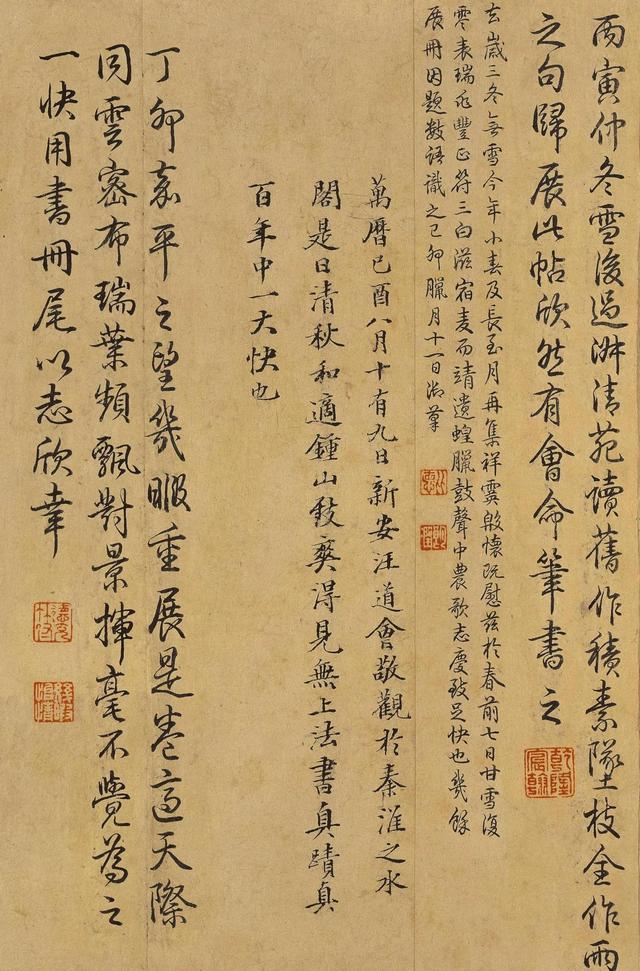 丙寅仲冬雪後過淋清苑讀舊作積素墜枝全作雨
之句歸展此帖欣然有會命筆書之
乾隆宸翰
去歲三冬無雪今年小春及長至月再集祥霙殷懷既慰茲於春前七日甘雪復
零表瑞兆豐正符三白滋宿麦而靖遺蝗臘鼓聲中農歌志慶致足快也幾餘
展冊因題數語識之己卯臘月十一日御筆
萬曆己酉八月十有九日新安汪道會敬觀於秦淮之水
閣是日清秋和適鍾山致爽得見無上法書真蹟真
百年中一大快也
丁卯嘉平之望幾暇重展是卷適天際
同雲密布瑞葉頻飄對景揮毫不覺為之
一快用書冊尾以志欣幸